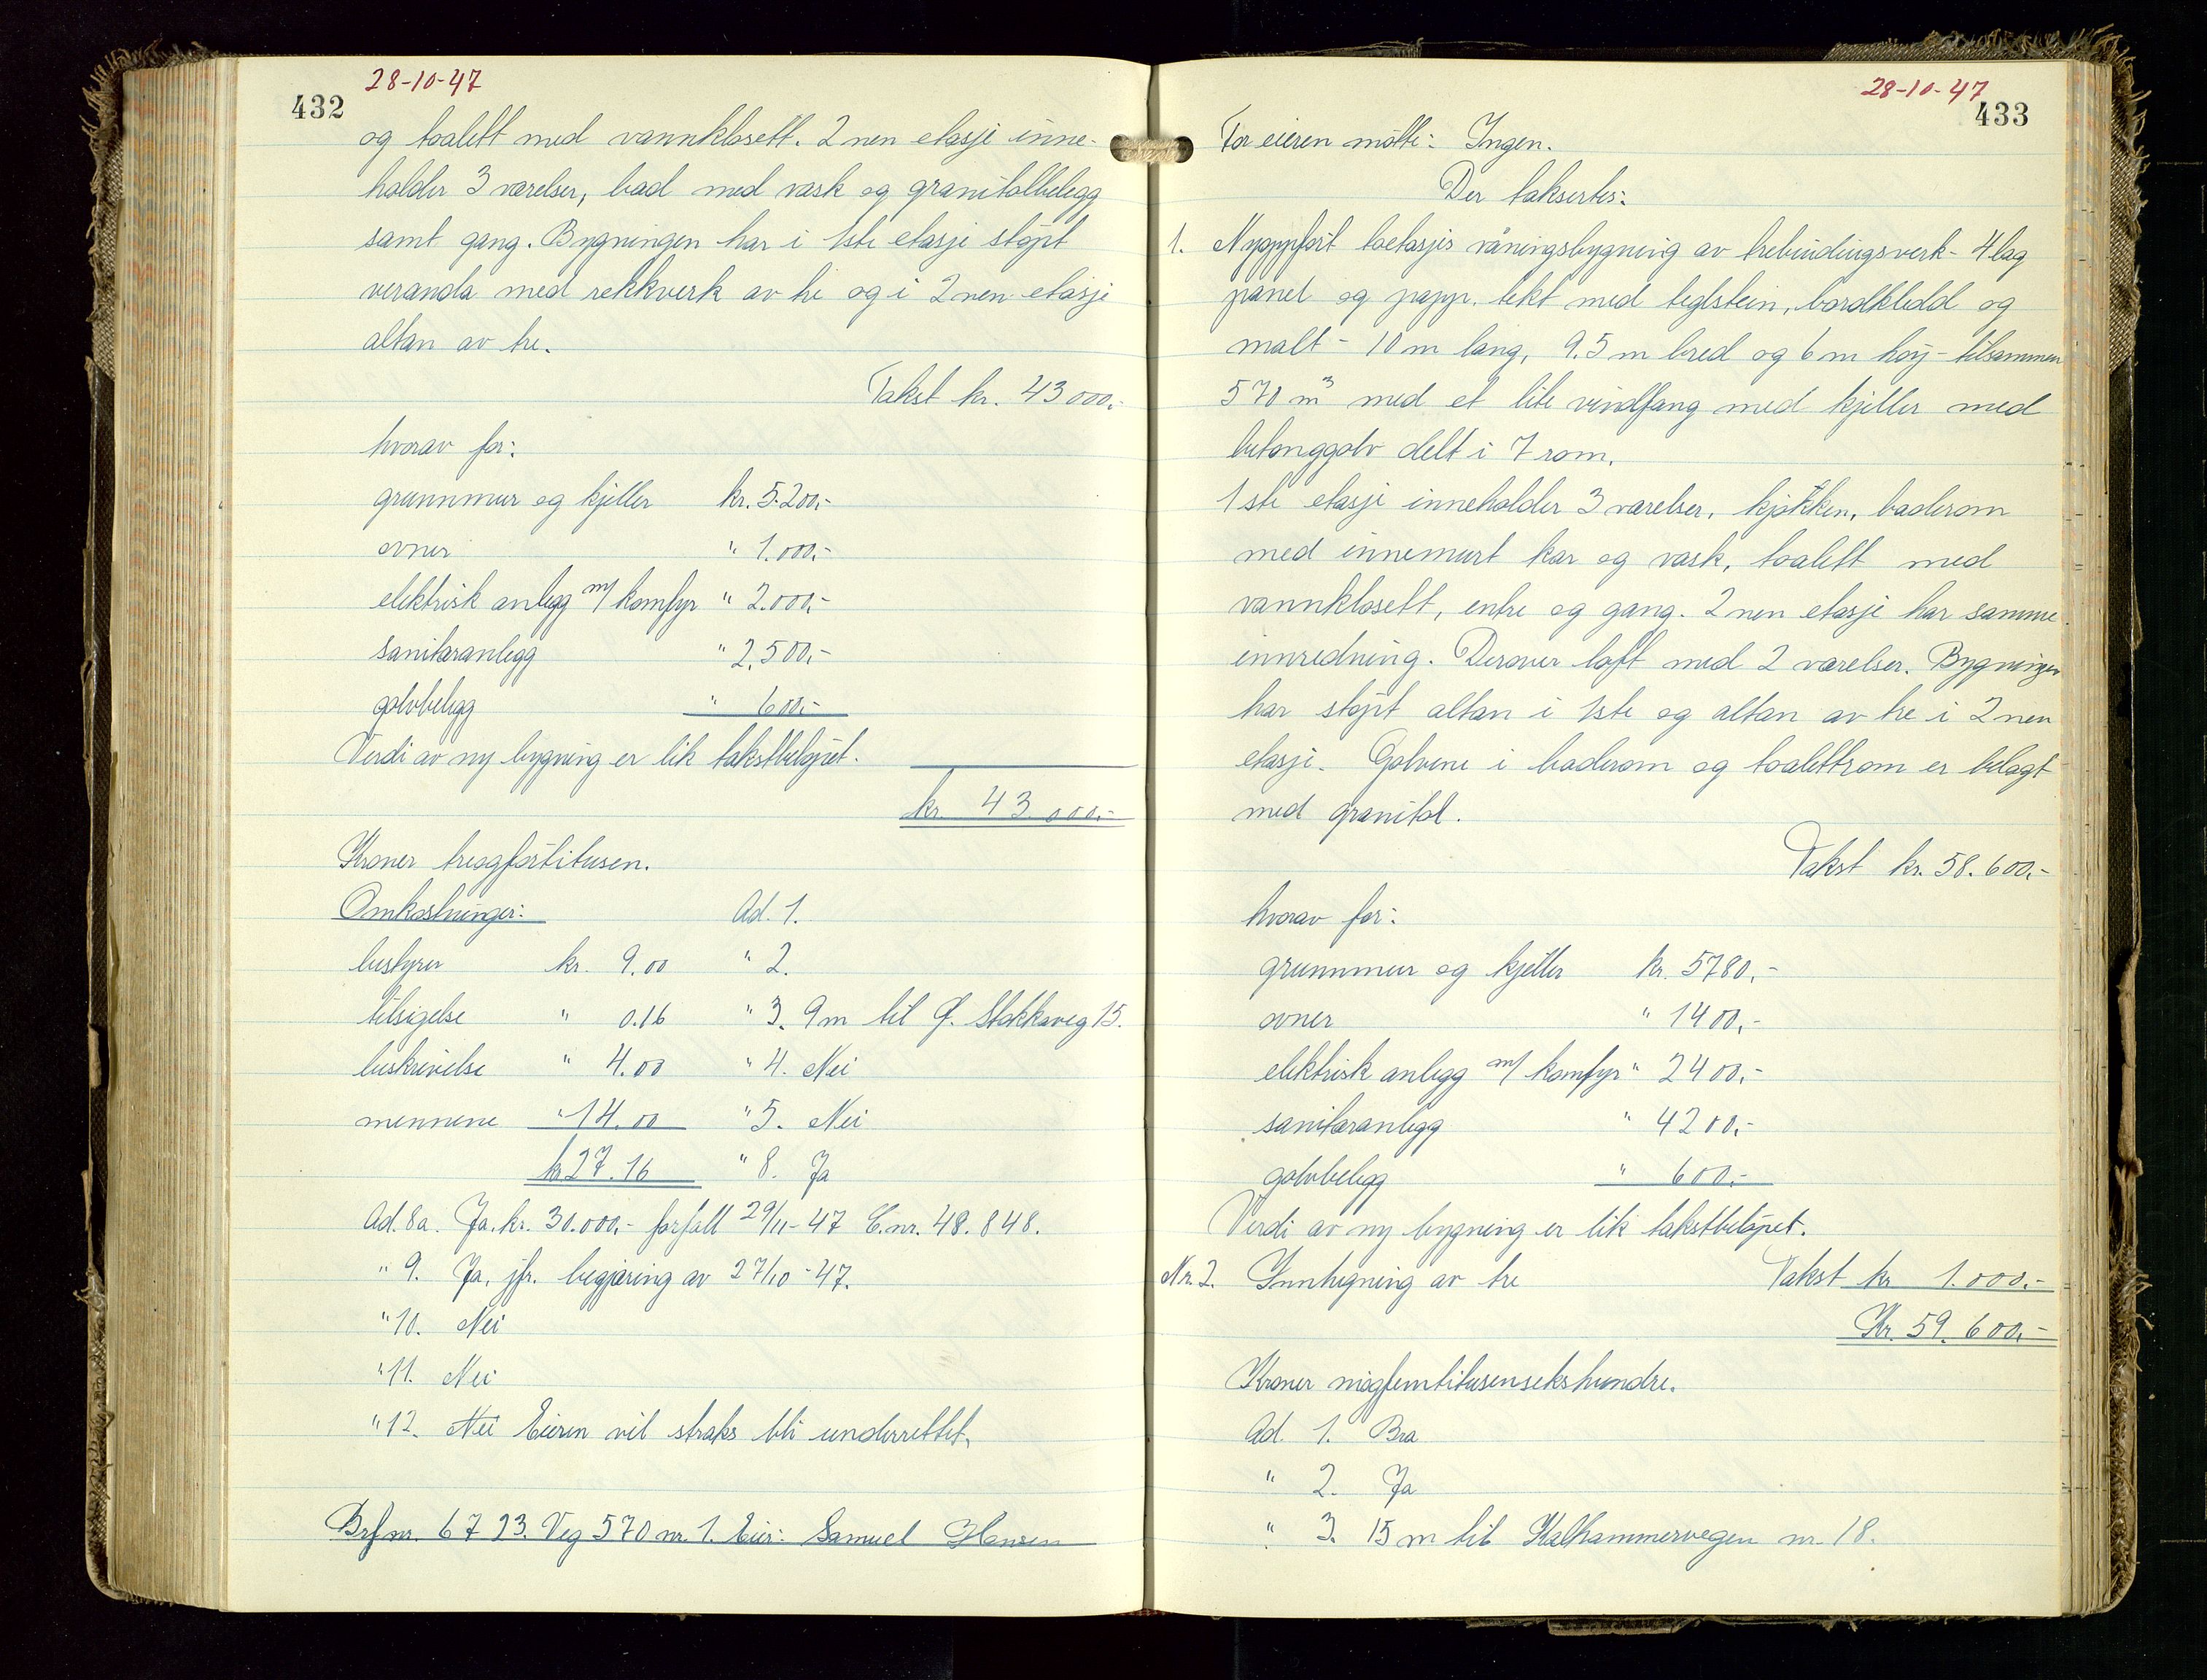 28-10-47
432
og toalett med vannklosett. 2nen etasje inne-
holder 3 værelser, bad med vask og granitolbelegg
samt gang. Bygningen har i 1ste etasje støpt
veranda med rekkverk av tre og i 2nen etasje
altan av tre.
Takst kr. 43000.-
hvorav for:
grunnmur og kjeller kr. 5.200.-
ovner " 1.000.-
elektrisk anlegg m/ komfyr " 2.000.-
sanitæranlegg " 2.500.-
golvbelegg " 600.-
Verdi av ny bygning er lik takstbeløpet.
kr. 43.000.-
Kroner treogførtitusen.
Omkostninger: Ad. 1.
bestyrer kr. 9.00 " 2.
tilsigelse " 0.16 " 3. 9m til Ø. Stokkaveg 15.
beskrivelse " 4.00 " 4. Nei
mennene " 14.00 " 5. Nei
kr 27.16 " 8. Ja
Ad. 8a. Ja. kr. 30.000.- forfall 29/11-47 C.nr. 48.848.
" 9. Ja, jfr. begjæring av 27/10-47.
" 10. Nei
" 11. Nei
" 12. Nei Eieren vil straks bli underrettet.
Brf.nr. 6793. Veg 570 nr. 1. Eier: Samuel Hansen
28-10-47
433
For eieren møtte: Ingen.
Der taksertes:
1. Nyoppført toetasjes våningsbygning av trebindingsverk - 4 lag
panel og papp. tekt med teglstein, bordkledd og
malt - 10 m lang, 9.5 m bred og 6 m høy - tilsammen
570 m³ med et lite vindfang med kjeller med
betonggolv delt i 7 rom.
1ste etasje inneholder 3 værelser, kjøkken, baderom
med innemurt kar og vask, toalett med
vannklosett, entre og gang. 2nen etasje har samme
innredning. Derover loft med 2 værelser. Bygningen
har støpt altan i 1ste og altan av tre i 2nen
etasje. Golvene i baderom og toalettrom er belagt
med granitol.
Takst kr. 58.600.-
hvorav for:
grunnmur og kjeller kr. 5780.-
ovner " 1400.-
elektrisk anlegg m/ komfyr " 2400.-
sanitæranlegg " 4200.-
golvbelegg " 600.-
Verdi av ny bygning er lik takstbeløpet.
Nr. 2. Innhegning av tre Takst kr 1.000.-
Kr. 59.600.-
Kroner niogfemtitusensekshundre.
Ad. 1. Bra
" 2. Ja
" 3. 15 m til Kalhammervegen nr. 18.